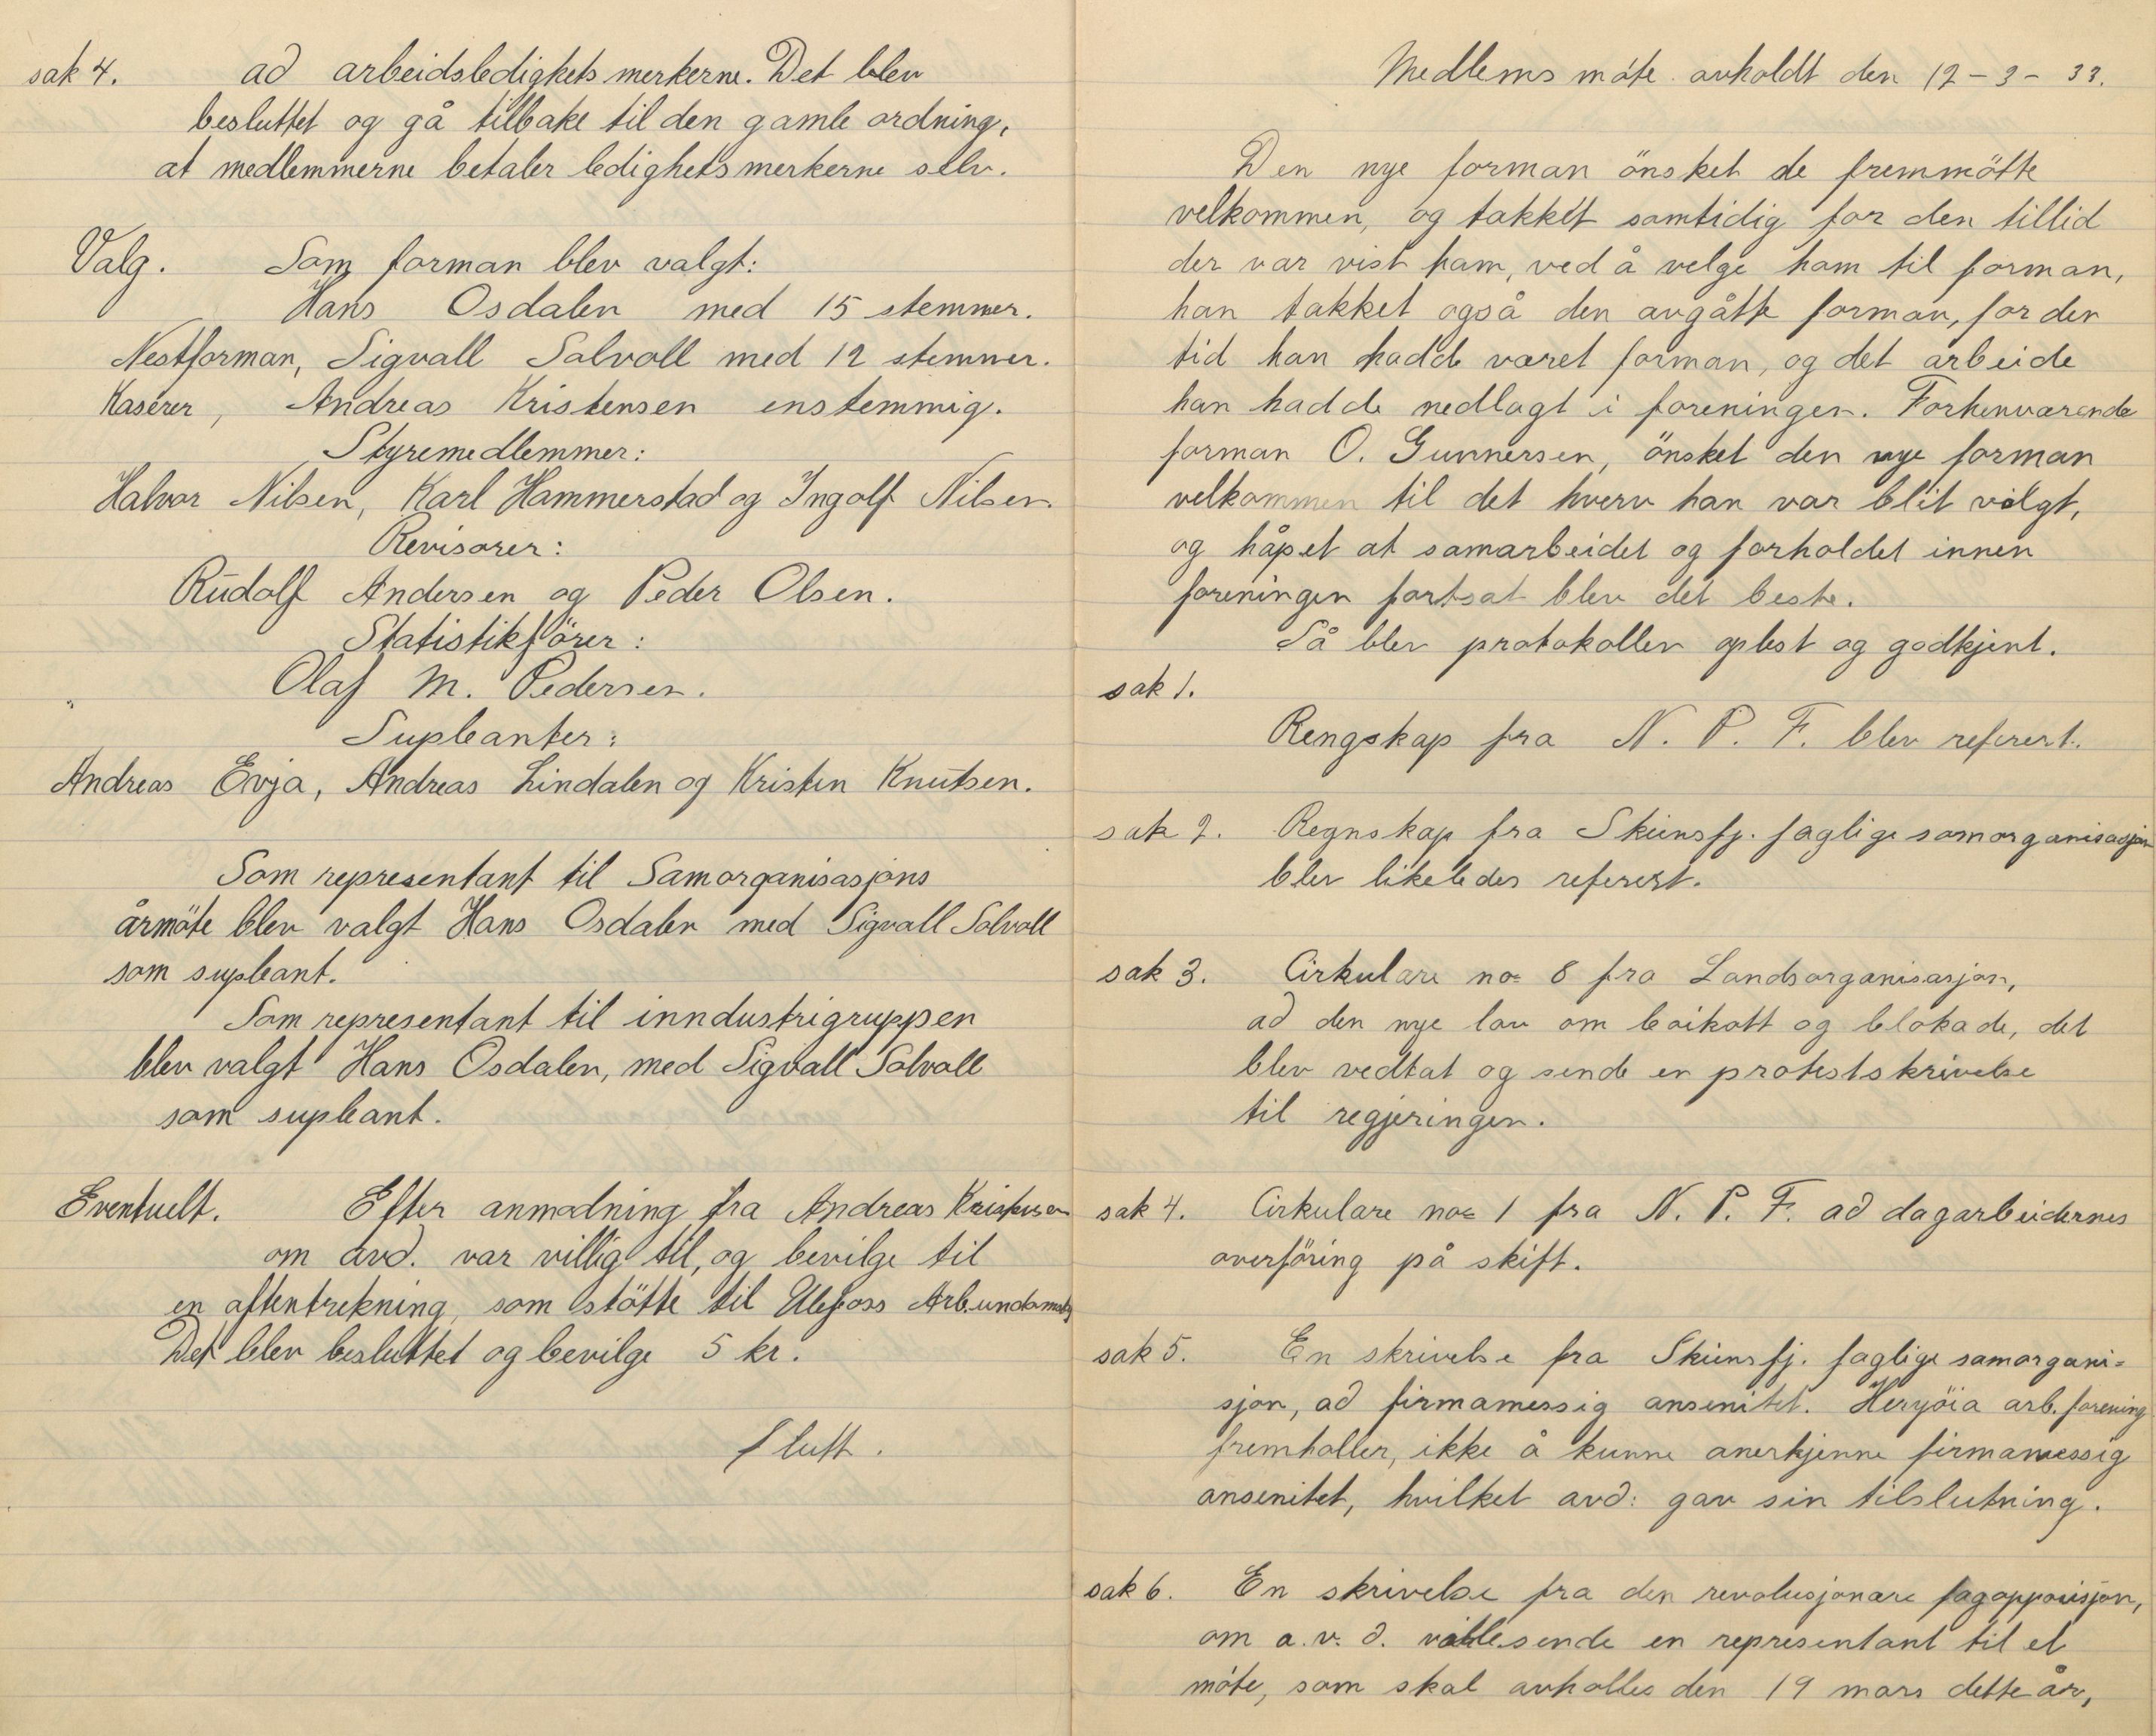 sak 4. ad arbeidsledighets merkerne. Det blev
besluttet og gå tilbake til den gamle ordning,
at medlemmerne betaler ledighetsmerkerne selv.
Valg. Som forman blev valgt:
Hans Osdalen med 15 stemmer.
Nestforman, Sigvall Solvoll med 12 stemmer.
Kaserer, Andreas Kristensen enstemmig.
Styremedlemmer:
Halvor Nilsen, Karl Hammerstad og Ingolf Nilsen.
Revisorer:
Rudolf Andersen og Peder Olsen.
Statistikförer:
Olaf M. Pedersen.
Supleanter:
Andreas Evja, Andreas Lindalen og Kristen Knutsen.
Som representant til Samorganisasjons
årmöte blev valgt Hans Osdalen med Sigvall Solvoll
som supleant.
Som representant til inndustrigruppen
blev valgt Hans Osdalen, med Sigvall Solvoll
som supleant.
Eventuelt. Efter anmodning fra Andreas Kristensen
om avd. var villig til, og bevilge til
en aftentrekning, som stötte til Ulefoss
Det blev besluttet og bevilge 5 kr.
Slutt.
Medlems möte avholdt den 12-3-33.
Den nye forman önsket de fremmötte
velkommen, og takket samtidig for den tillid
der var vist ham, ved å velge ham til forman,
han takket også den avgåtte forman, for den
tid han hadde været forman, og det arbeide
han hadde nedlagt i foreningen. Forhenværende
forman O. Gunnersen, önsket den nye forman
velkommen til det hverv han var blit valgt,
og håpet at samarbeidet og forholdet innen
foreningen fortsat blev det beste.
Så blev protokollen oplest og godkjent.
sak 1.
Rengskap fra N. P. F. blev referert.
sak 2. Regnskap fra Skiensfj. faglige samorganisasjon
blev likeledes referert.
sak 3. Cirkulare no= 8 fra Landsorganisasjon,
ad den nye lov om boikott og blokade, det
blev vedtat og sende en protestskrivelse
til regjeringen.
sak 4. Cirkulare no= 1 fra N. P. F. ad dagarbeidernes
overföring på skift.
sak 5. En skrivelse fra Skiensfj. faglige samorgani=
sjon, ad firmamessig ansenitet. Heröia arb. forening
fremholler, ikke å kunne anerkjenne firmamessig
ansenitet, hvilket avd: gav sin tilslutning.
sak 6. En skrivelse fra den revolusjonære fagopposisjon,
om a.v.d. ville sende en representant til et
möte, som skal avholles den 19 mars dette år,